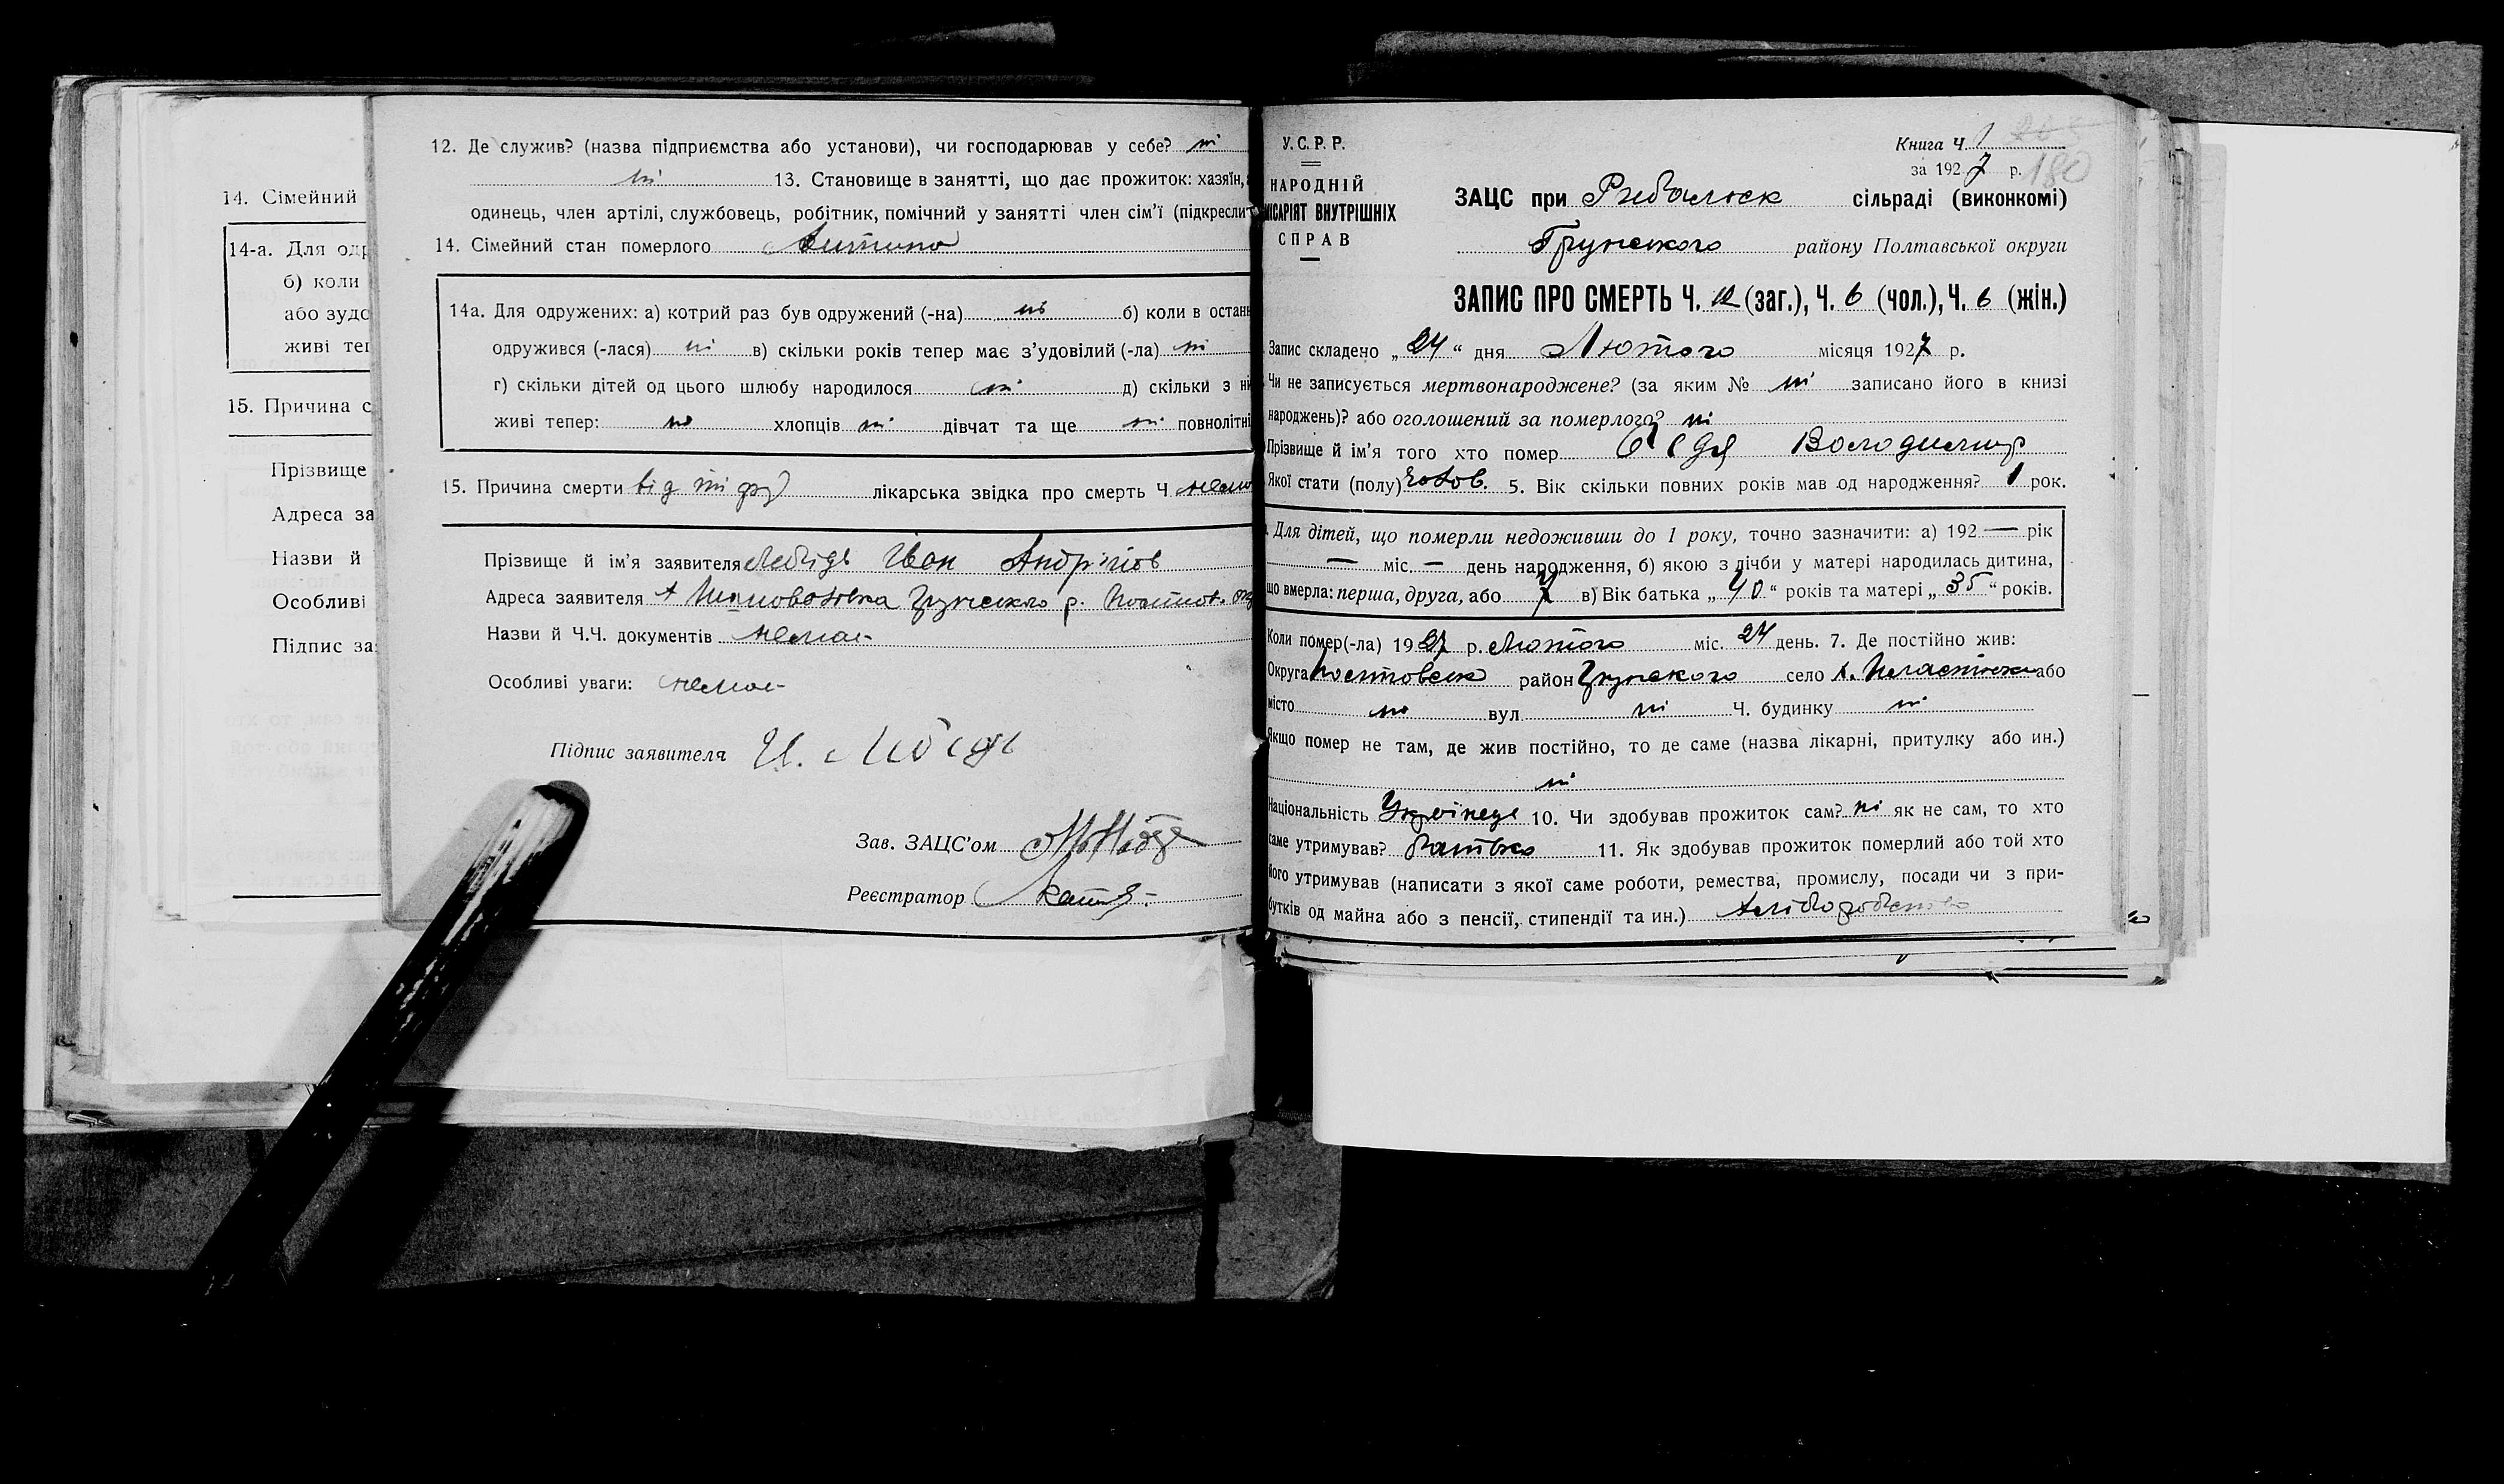 14. Сімейний
14-а. Для одр
б) коли
або зудо
живі теп
15. Причина с
Прізвище
Адреса за
Назви й
Особливі
Підпис за
12. Де служив? (назва підприємства або установи), чи господарював у себе? ні
ні 13. Становище в занятті, що дає прожиток: хазяїн,
одинець, член артілі, службовець, робітник, помічний у занятті член сім'ї (підкреслит
14. Сімейний стан померлого дитина
14а. Для одружених: а) котрий раз був одружений (-на) ні б) коли в останн
одружився (-лася) ні в) скільки років тепер має з'удовілий (-ла) ні
г) скільки дітей од цього шлюбу народилося ні д) скільки з ни
живі тепер: ні хлопців ні дівчат та ще ні повнолітні
15. Причина смерти від тіфу лікарська звідка про смерть Ч немає
Прізвище й ім'я заявителя Лебідь Іван Андріїов
Адреса заявителя х Грунського р. Полтов.
Назви й Ч.Ч. документів немає
Особливі уваги: немає
Підпис заявителя И. Лебідь
Зав. ЗАЦС'ом
Реєстратор
У.С.Р.Р.
НАРОДНІЙ
МІСАРІЯТ ВНУТРІШНІХ
СПРАВ
Книга Ч. 1
за 1927 р. 180
ЗАЦС при Рибальск сільраді (виконкомі)
Грунського району Полтавської округи
ЗАПИС ПРО СМЕРТЬ Ч. 12 (заг.), Ч. 6 (чол.), Ч. 6 (жін.)
Запис складено „24“ дня Лютого місяця 1927 р.
Чи не записується мертвонароджене? (за яким № ні записано його в книзі
народжень)? або оголошений за померлого? ні
Прізвище й ім'я того хто помер Володимир
Якої стати (полу) чолов. 5. Вік скільки повних років мав од народження? 1 рок.
. Для дітей, що померли недоживши до 1 року, точно зазначити: а) 192 — рік
— міс. — день народження, б) якою з лічби у матері народилась дитина,
що вмерла: перша, друга, або 7 в) Вік батька „40“ років та матері „35“ років.
Коли помер(-ла) 1927 р. Лютого міс. 24 день. 7. Де постійно жив:
Округа Полтовськ район Грунського село х. або
місто ні вул ні Ч. будинку ні
Якщо помер не там, де жив постійно, то де саме (назва лікарні, притулку або ин.)
ні
Національність Українець 10. Чи здобував прожиток сам? ні як не сам, то хто
саме утримував? батько 11. Як здобував прожиток померлий або той хто
його утримував (написати з якої саме роботи, ремества, промислу, посади чи з при-
бутків од майна або з пенсії, стипендії та ин.) хліборобство